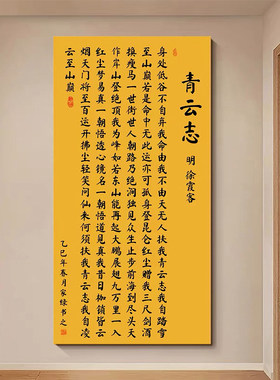 青云志
明 徐霞客
身处低谷不自弃我命由我不由天无人扶我青云志我自踏雪
至山巅若是命中无此运亦可孤身登昆仑红尘赠我三尺剑酒
换瘦马一世街世人朝路乃绝涧独见众生止步前海到尽头天
作岸山登绝顶我为峰如若东山能再起大鹏展翅九万里一入
红尘梦易真一朝悟透心镜名一朝悟道见真我昔日枷锁皆云
烟天门将至百运开拂尘轻笑问仙来何须扶我青云志我自凌
云至山巅
乙巳年春月家绿书之